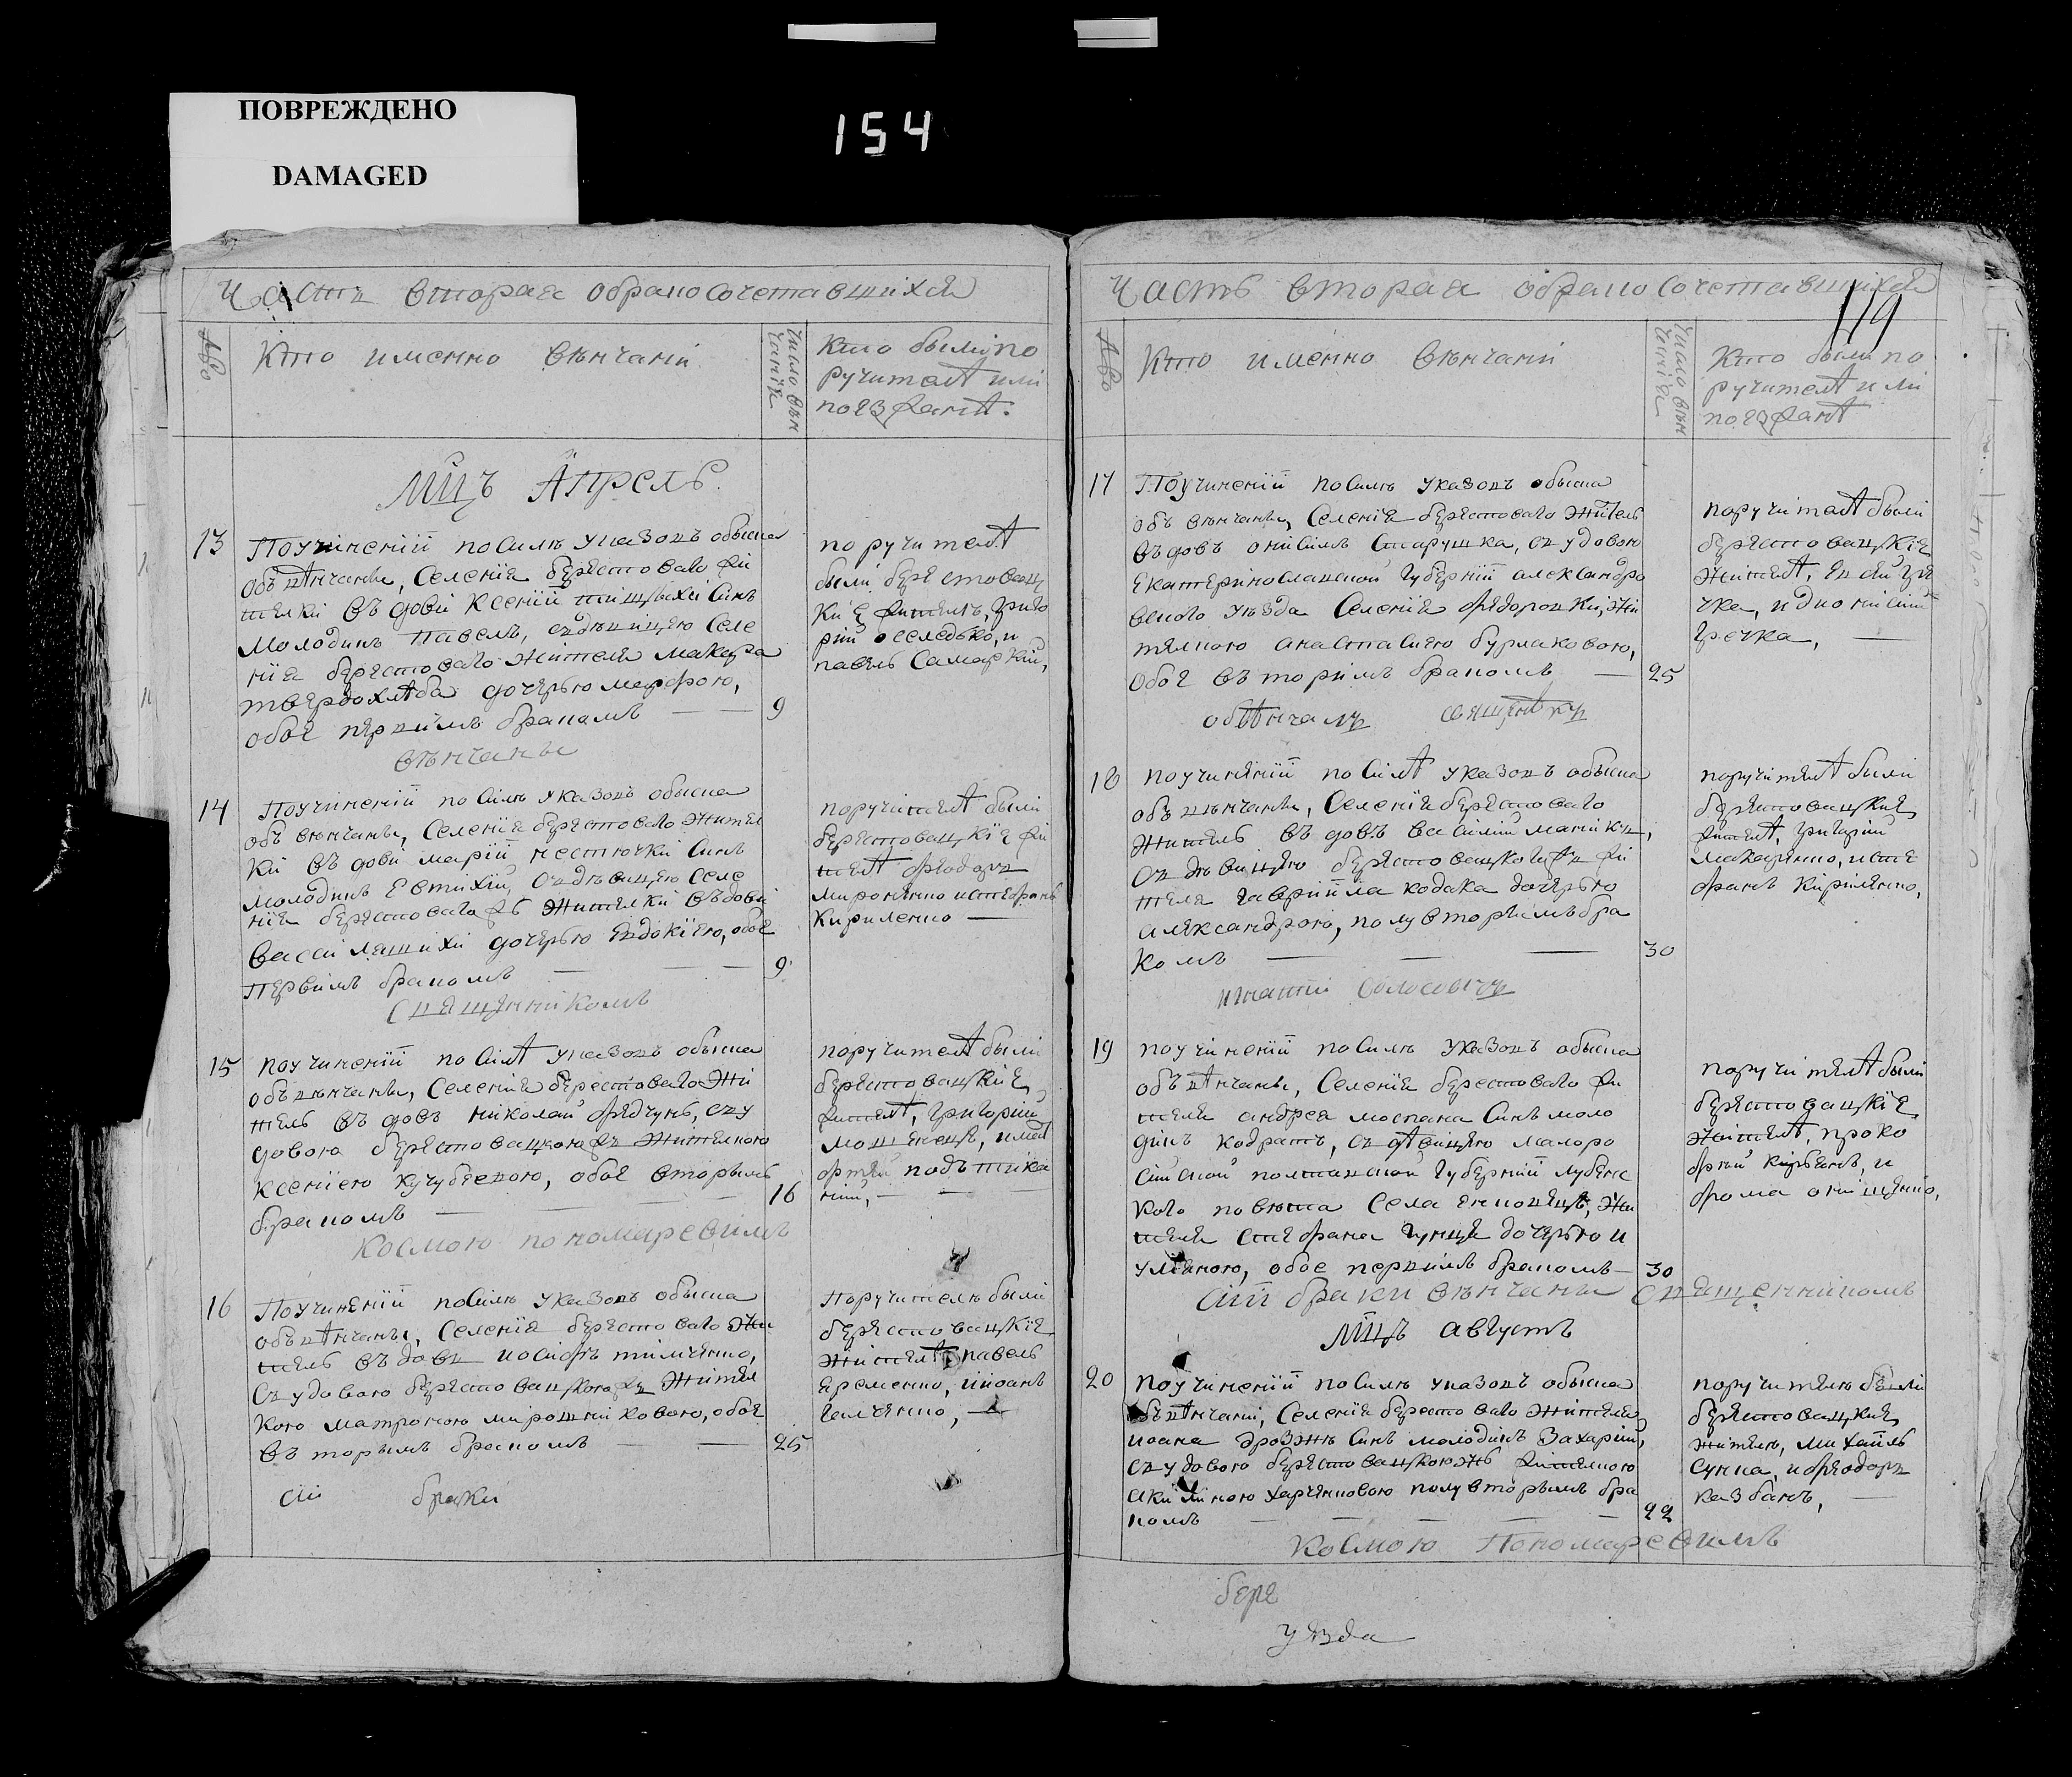 ПОВРЕЖДЕНО
DAMAGED
154
Часть вторая о бракосочетавшихся
№
Кто именно вѣнчаній
Число вѣн
чанія
Кто были по
ручителѣ или
поезжанѣ.
Мцъ Апрель
13
По учиненіи по силѣ указовъ обыска
обвѣнчаны, Селенія берестоваго жи
телки вдови Ксеніи Синъ
молодикъ Павелъ, съ дѣвицею Селе
нія берестоваго жителя Макара
твердохлѣба дочерью марфою,
обое первимъ бракомъ
9
поручителѣ
были берестовац
кіе жителѣ, Григо
рій оселедько, и
павелъ Самарскій,
вѣнчаны
14
По учиненіи по силѣ указовъ обыска
обвѣнчаны, Селенія берестоваго жител
ки вдови маріи нестючки Синъ
молодикъ Евтихій, съ дѣвицею Селе
нія берестоваго жителки вдови
дочерью Евдокіею, обое
первимъ бракомъ
9
поручителѣ были
берестовацкіе жи
телѣ Феодоръ
мироненко и стефанъ
Кириленко
Священникомъ
15
по учиненіи по силѣ указовъ обыска
обвѣнчаны, Селенія берестоваго жи
тель вдовъ николай федчунъ, съ у
довою берестовацкою жителкою
Ксеніею кучубеевою, обое вторымъ
бракомъ
16
поручителѣ были
берестовацкіе
жителѣ, Григорій
мошенецъ, имат
фтей подътика
ній,
Космою пономаревимъ
16
По учиненіи по силѣ указовъ обыска
обвѣнчаны, Селенія берестоваго жи
тель вдовъ иосифъ тимченко,
съ удовою берестовацкою жител
кою матроною мирошниковою, обое
вторымъ бракомъ
25
Поручителѣ были
берестовацкіе
жителѣ, павелъ
еременко, и иоанъ
галченко,
Сіи браки
Часть вторая о бракосочетавшихся
119
№
Кто именно вѣнчаній
Число вѣн
чанія
Кто были по
ручителѣ или
поезжанѣ
17
По учиненіи по силѣ указовъ обыска
обвѣнчаны, Селенія берестоваго житель
вдовъ онисимъ Старушка, съ удовою
Екатеринославской Губерніи александро
вского уѣзда Селенія Федоровки, жи
телкою анастасіею бурлаковою,
обое вторимъ бракомъ
25
поручителѣ были
берестовацкіе
жителѣ, Гре
чка, и дионисий
Гречка,
обвѣнчалъ священикъ
18
по учиненіи по силѣ указовъ обыска
обвѣнчаны, Селенія берестоваго
житель вдовъ василий
съ дѣвицею берестовацкого жи
теля гавриила кодака дочерью
александрою, полувторымъ бра
комъ
30
поручителѣ были
берестовацкие
жителѣ, Григорий
макаренко, и сте
фанъ Кириленко,
игнатий
19
по учиненіи по силѣ указовъ обыска
обвѣнчаны, Селенія берестоваго жи
теля андрея моспана Синъ моло
дикъ кодратъ, съ дѣвицею малоро
сийской полтавской губерніи лубенс
кого повѣта Села жи
теля Стефана дочерью и
улияною, обое первимъ бракомъ
30
поручителѣ были
берестовацкіе
жителѣ, проко
фий кирьянъ, и
фома онищенко,
Сіи браки вѣнчаны Священникомъ
Мцъ августъ
20
по учиненіи по силѣ указовъ обыска
обвѣнчани, Селенія берестоваго жителя
иоана Синъ молодикъ Захарий,
съ удовою берестовацкою жителкою
акилиною харченковою полувторымъ бра
комъ
22
поручителѣ были
берестовацкие
жителѣ, михаилъ
Сукка, и феодоръ
казбанъ,
Космою Пономаревимъ
бере
уѣзда